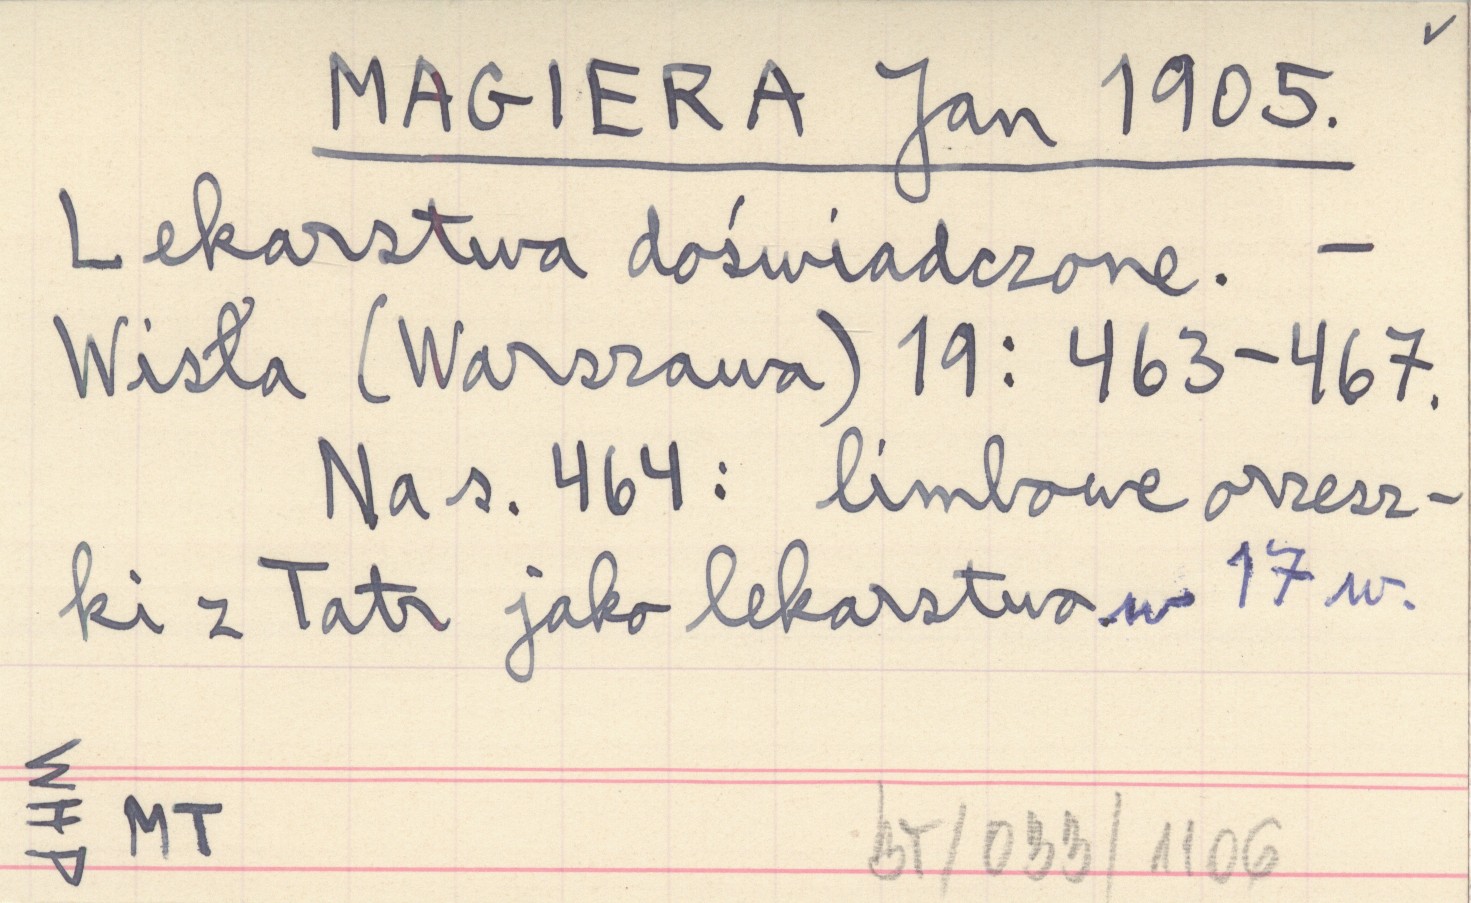 ✓
MAGIERA Jan 1905.
Lekarstwa doświadczone. –
Wisła (Warszawa) 19: 463–467.
Na s. 464: limbowe orzesz-
ki z Tatr jako lekarstwo w 17 w.
WHP
MT
BT/033/1106